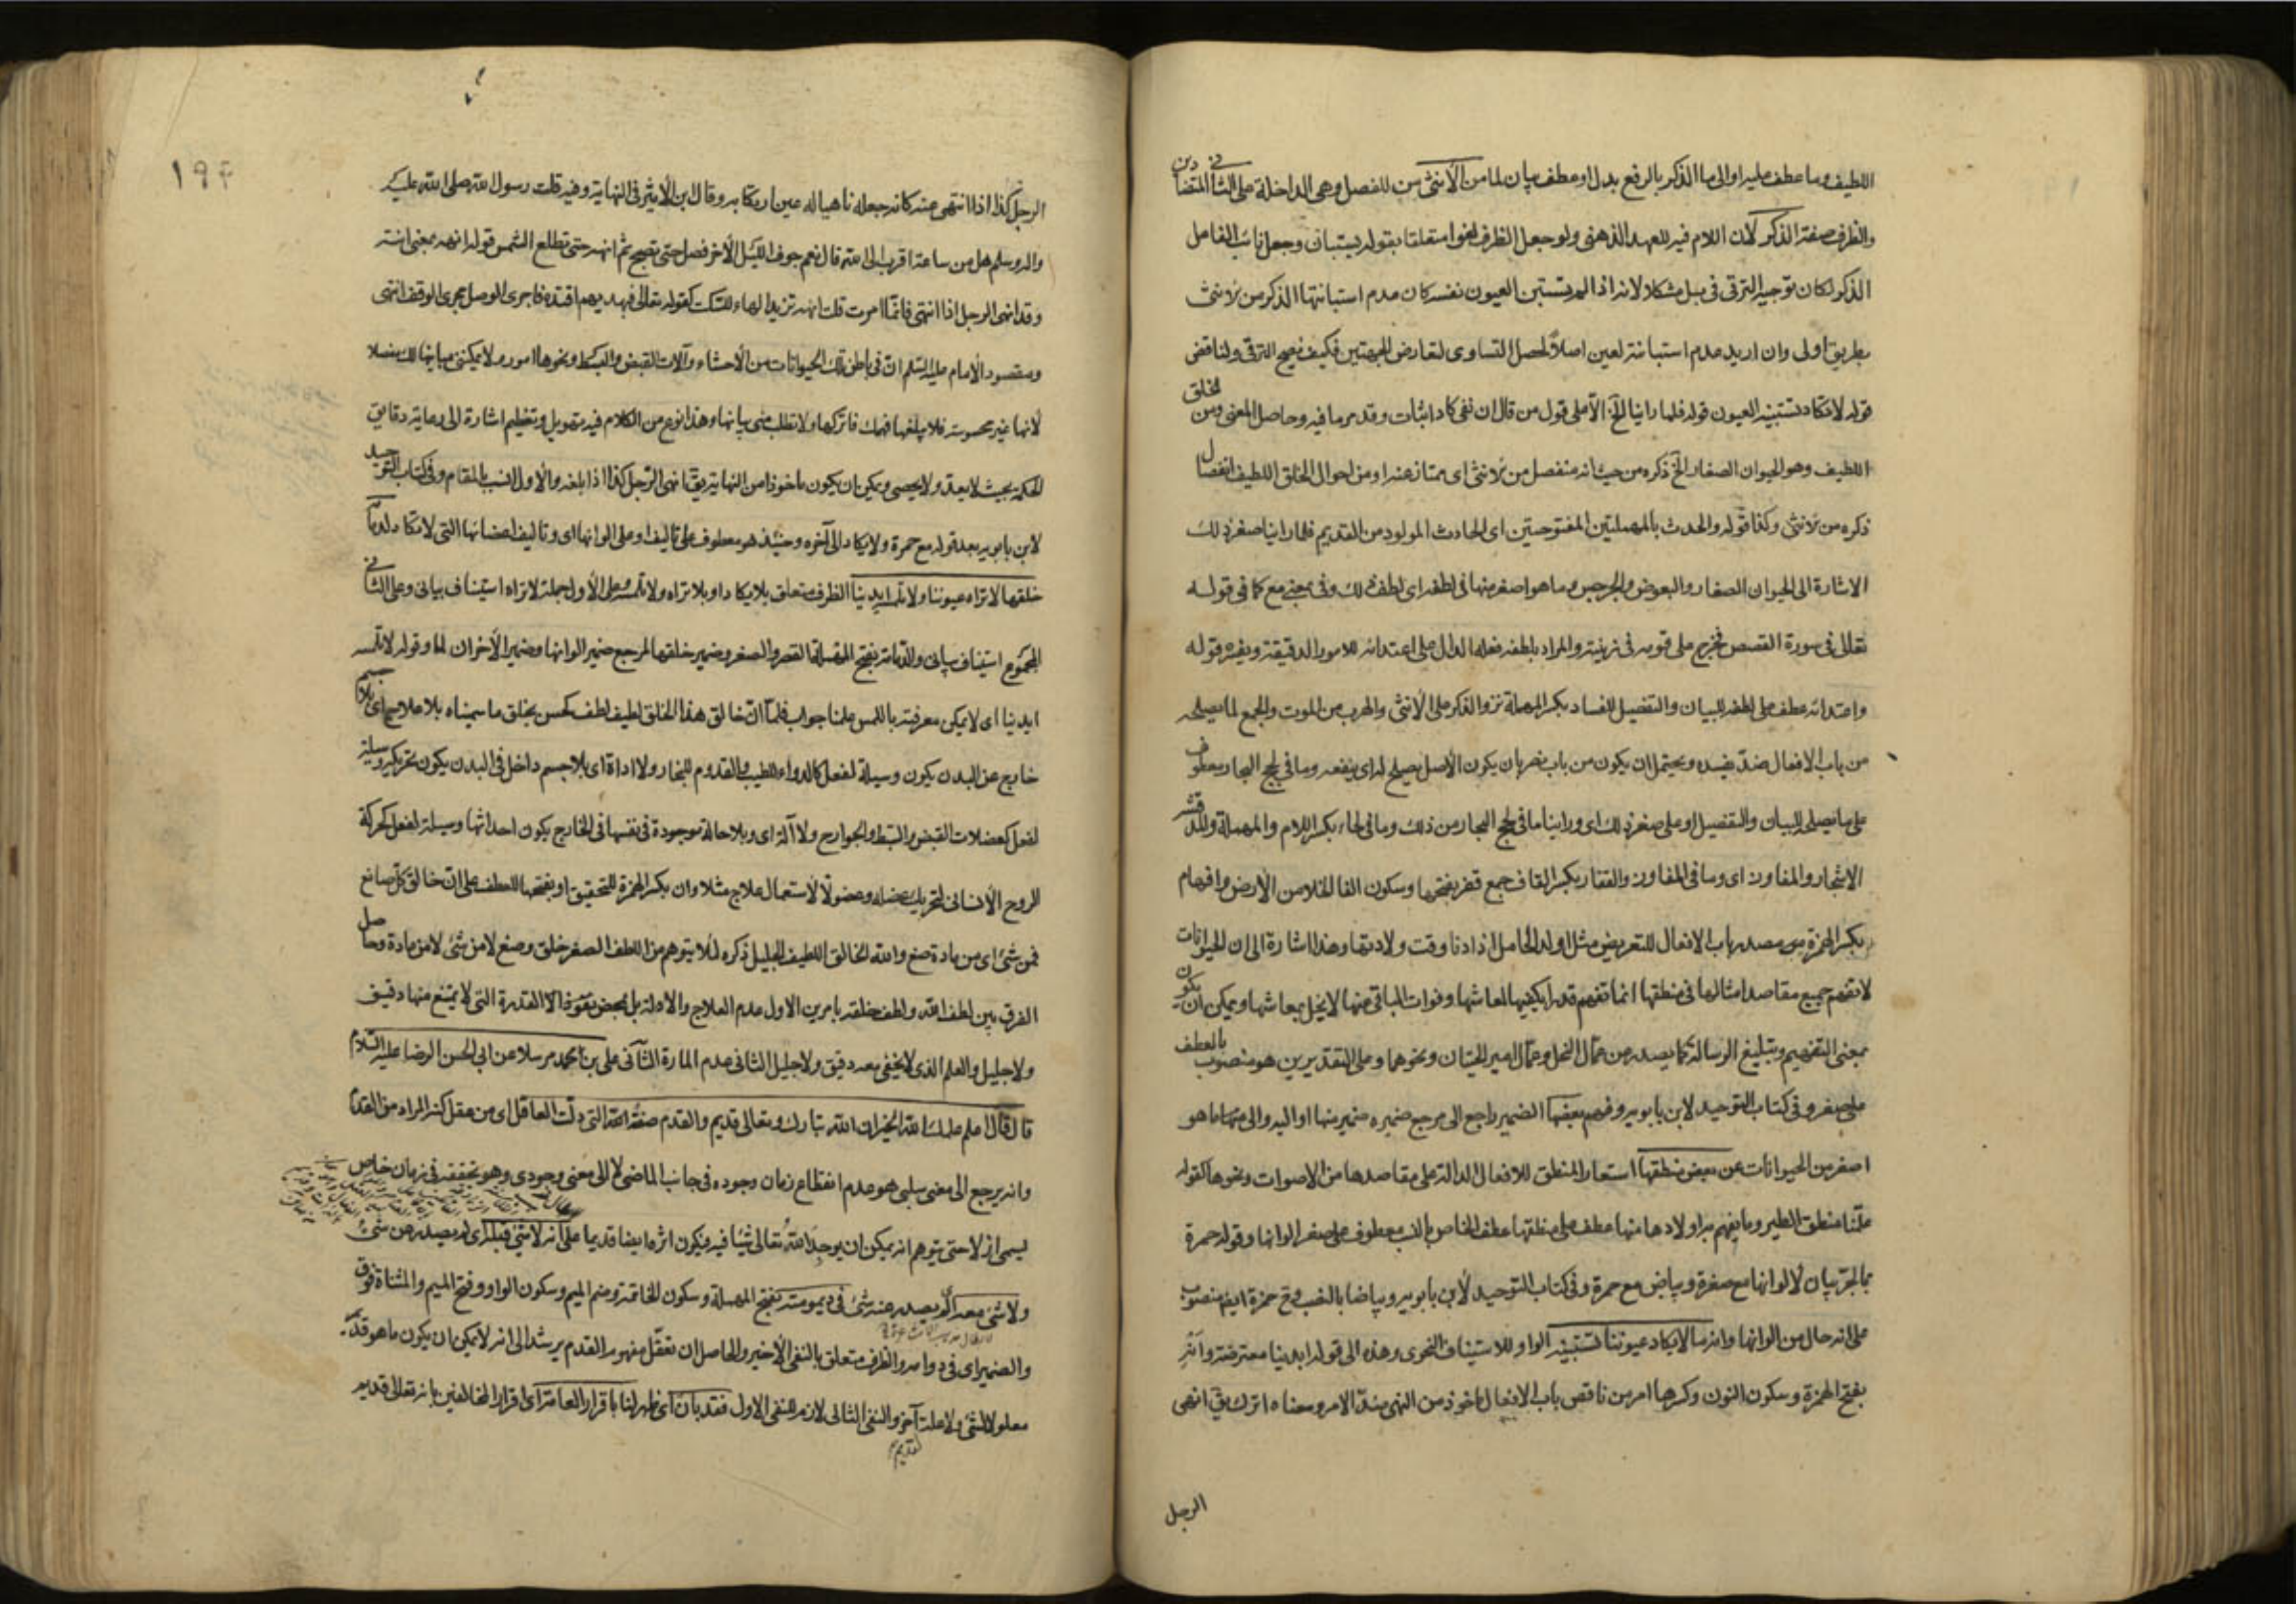 اللطيف وما عطف عليه او الى ما الذكر بالرفع بدل او عطف بيان لما من الأنثى من للفصل وهى الداخلة على الثانى المتضادين
والظرف صفة الذكر لأن اللام فيه للعهد الذهنى ولو جعل الظرف لغوا متعلقا بقوله يستبان وجعل نائب الفاعل
الذكر لكان توجيه الترقى فى بل مشكلا لانه اذا لم تستبن العيون نفسه كان عدم استبانتها الذكر من الانثى
بطريق اولى وان اريد عدم استبانته لعين اصلا لحصل التساوى لتعارض الجهتين فكيف يصح الترقى ولناقض
قوله لا تكاد تستبينه العيون قوله فلما راينا الخ الا على قول من قال ان نفى كاد اثبات وقد مر ما فيه وحاصل المعنى ومن الخلق
اللطيف وهو الحيوان الصغار الخ ذكره من حيث انه منفصل من الانثى اى ممتاز عنه او من احوال الخلق اللطيف انفصال
ذكره من الانثى وكذا قوله والحدث بالمهملتين المفتوحتين اى الحادث المولود من القديم فلما راينا صغر ذلك
الاشارة الى الحيوان الصغار والبعوض والجرجس وما هو اصغر منها فى لطفه اى لطف ذلك وفى بمعنى مع كما فى قوله
تعالى فى سورة القصص فخرج على قومه فى زينته والمراد بلطفه فعله الدال على اهتدائه للامور الدقيقة ويفسره قوله
واهتدائه عطف على لطفه للبيان والتفصيل للفساد بكسر المهملة نزو الذكر على الأنثى والهرب من الموت والجمع لما يصلحه
من باب الافعال ضد يفسده ويحتمل ان يكون من باب نصر بان يكون الأصل يصلح له اى ينفعه وما فى لجج البحار معطوف
على ما يصلحه للبيان والتفصيل او على صغر ذلك اى وراينا ما فى لجج البحار من ذلك وما فى لحاء بكسر اللام والمهملة والمد قشر
الاشجار والمفاوز اى وما فى المفاوز والقفار بكسر القاف جمع قفر بفتحها وسكون الفا الخلا من الأرض وافهام
بكسر الهمزة مصدر باب الافعال للتعريض مثل اولد الحامل اذا دنا وقت ولادتها وهذا اشارة الى ان الحيوانات
لا تفهم جميع مقاصد امثالها فى منطقها انما تفهم قدرا يكفيها لمعاشها وفوات الباقى منها لا يخل بمعاشها ويمكن ان يكون
بمعنى التفهيم وتبليغ الرسالة كما يصدر من عمال النحل وعمال امير الحيتان ونحوهما وعلى التقديرين هو منصوب بالعطف
على صغر وفى كتاب التوحيد لابن بابويه وفهم بعضها الضمير راجع الى مرجع ضميره ضمير منها او اليه والى منها ما هو
اصغر من الحيوانات عن بعض منطقها استعار المنطق للافعال الدالة على مقاصدها من الاصوات ونحوها كقوله
علمنا منطق الطير وما يفهم به اولادها منها عطف على منطقها عطف الخاص بالنسب معطوف على صغر الوانها وقوله حمرة
بالجر بيان لالوانها مع صفرة وبياض مع حمرة وفى كتاب التوحيد لأبن بابويه وبياضا بالنصب وح حمرة ايضا منصوب
على انه حال من الوانها وانه ما لا يكاد عيوننا تستبينه الواو للاستيناف النحوى وهذه الى قوله ايدينا معترضة وأنه
بفتح الهمزة وسكون النون وكسر ها امر من ناقص باب الافعال ماخوذ من النهى ضد الامر ومعناه اترك يقال انهى
الرجل
١٩٤
الرجل كذا اذا انتهى عنه كانه جعله ناهيا له عن ارتكابه وقال ابن الأثير فى النهاية وفيه قلت رسول الله صلى الله عليه
واله وسلم هل من ساعة اقرب الى الله قال نعم جوف الليل الأخر فصل حتى تصبح ثم انهه حتى تطلع الشمس قوله انهه بمعنى انته
وقد انهى الرجل اذا انتهى فاذا امرت قلت انهه تزيد الهاء للسكت كقوله تعالى فبهديهم اقتده فاجرى الوصل مجرى الوقف انتهى
ومقصود الأمام عليه السلم ان فى باطن تلك الحيوانات من الأحشاء وآلات القبض والبسط ونحوها امور لا يمكننى بيانها لك مفصلا
لأنها غير محسوسة فلا يبلغها فهمك فاتركها ولا تطلب منى بيانها وهذا نوع من الكلام فيه تهويل وتعظيم اشارة الى رعاية دقايق
الحكمة بحيث لا يعد ولا يحصى ويمكن ان يكون ماخوذا من النهاية يقال انهى الرجل كذا اذا بلغه والأول انسب بالمقام وفى كتاب التوحيد
لابن بابويه بعد قوله مع حمرة ولا يكاد الى آخره وحينئذ هو معطوف على تاليف او على الوانها اى وتاليف اعضائها التى لا تكاد لدمامة
خلقها لا تراه عيوننا ولا تلمسه ايدينا الظرف متعلق بلا يكاد او بلا تراه ولا تلمسه على الأول جملة لا تراه استيناف بيانى وعلى الثانى
المجموع استيناف بيانى والدمامة بفتح المهملة القصر والصغر وضمير خلقها لمرجع ضمير الوانها وضمير الأخران لما وقوله لا تلمسه
ايدينا اى لا يمكن معرفته باللمس علمنا جواب فلما ان خالق هذا الخلق لطيف لطف كحسن بخلق ما سميناه بلا علاج اى بلا جسم
خارج عن البدن يكون وسيلة لفعل كالدواء للطبيب والقدوم للنجار ولا اداة اى بلا جسم داخل فى البدن يكون تحريكه وسيلة
لفعل كعضلات القبض والبسط والجوارح ولا آلة اى وبلا حالة موجودة فى نفسها فى الخارج يكون احداثها وسيلة لفعل كحركة
الروح الأنسانى لتحريك عضلة وعضو لأستعمال علاج مثلا وان بكسر الهمزة للتحقيق او بفتحها للعطف على ان خالق كل صانع
فمن شئ اى من مادة صنع والله الخالق اللطيف الجليل ذكره لئلا يتوهم من اللطف الصغر خلق وصنع لا من شئ لا من مادة وحاصل
الفرق بين لطف الله ولطف خلقه بامرين الاول عدم العلاج والادلة بل بمحض نفوذ الا القدرة التى لا يمتنع منها دقيق
ولا جليل والعلم الذى لا يخفى معه دقيق ولا جليل الثانى عدم المادة الثانى على بن محمد مرسلا عن ابى الحسن الرضا عليه السلام
قال قال اعلم علمك الله الخير ان الله تبارك وتعالى قديم والقدم صفة الله التى دلت العاقل اى من عقل كنه المراد من القدم
وانه يرجع الى معنى سلبى هو عدم انقطاع زمان وجوده فى جانب الماضى لا الى معنى وجودى وهو تحققه فى زمان خاص
يسمى ازلا حتى يتوهم انه يمكن ان يوجد الله تعالى شيئا فيه فيكون اثره ايضا قديما على انه لا شئ قبله اى لم يصدر عن شئ
ولا شئ معه اى لم يصدر عنه شئ فى ديمومته بفتح المهملة وسكون الخاتمة وضم الميم وسكون الواو وفتح الميم والمثناة فوق
والضمير اى فى دوامه والظرف متعلق بالنفى الأخير والحاصل ان تعقل مفهوم القدم يرشد الى انه لا يمكن ان يكون ما هو قديم
معلولا لشئ ولا علة لقديم آخر والنفى الثانى لازم للنفى الاول فقد بان اى ظهر لنا باقرار العامة اى اقرار المخالفين بانه تعالى قديم